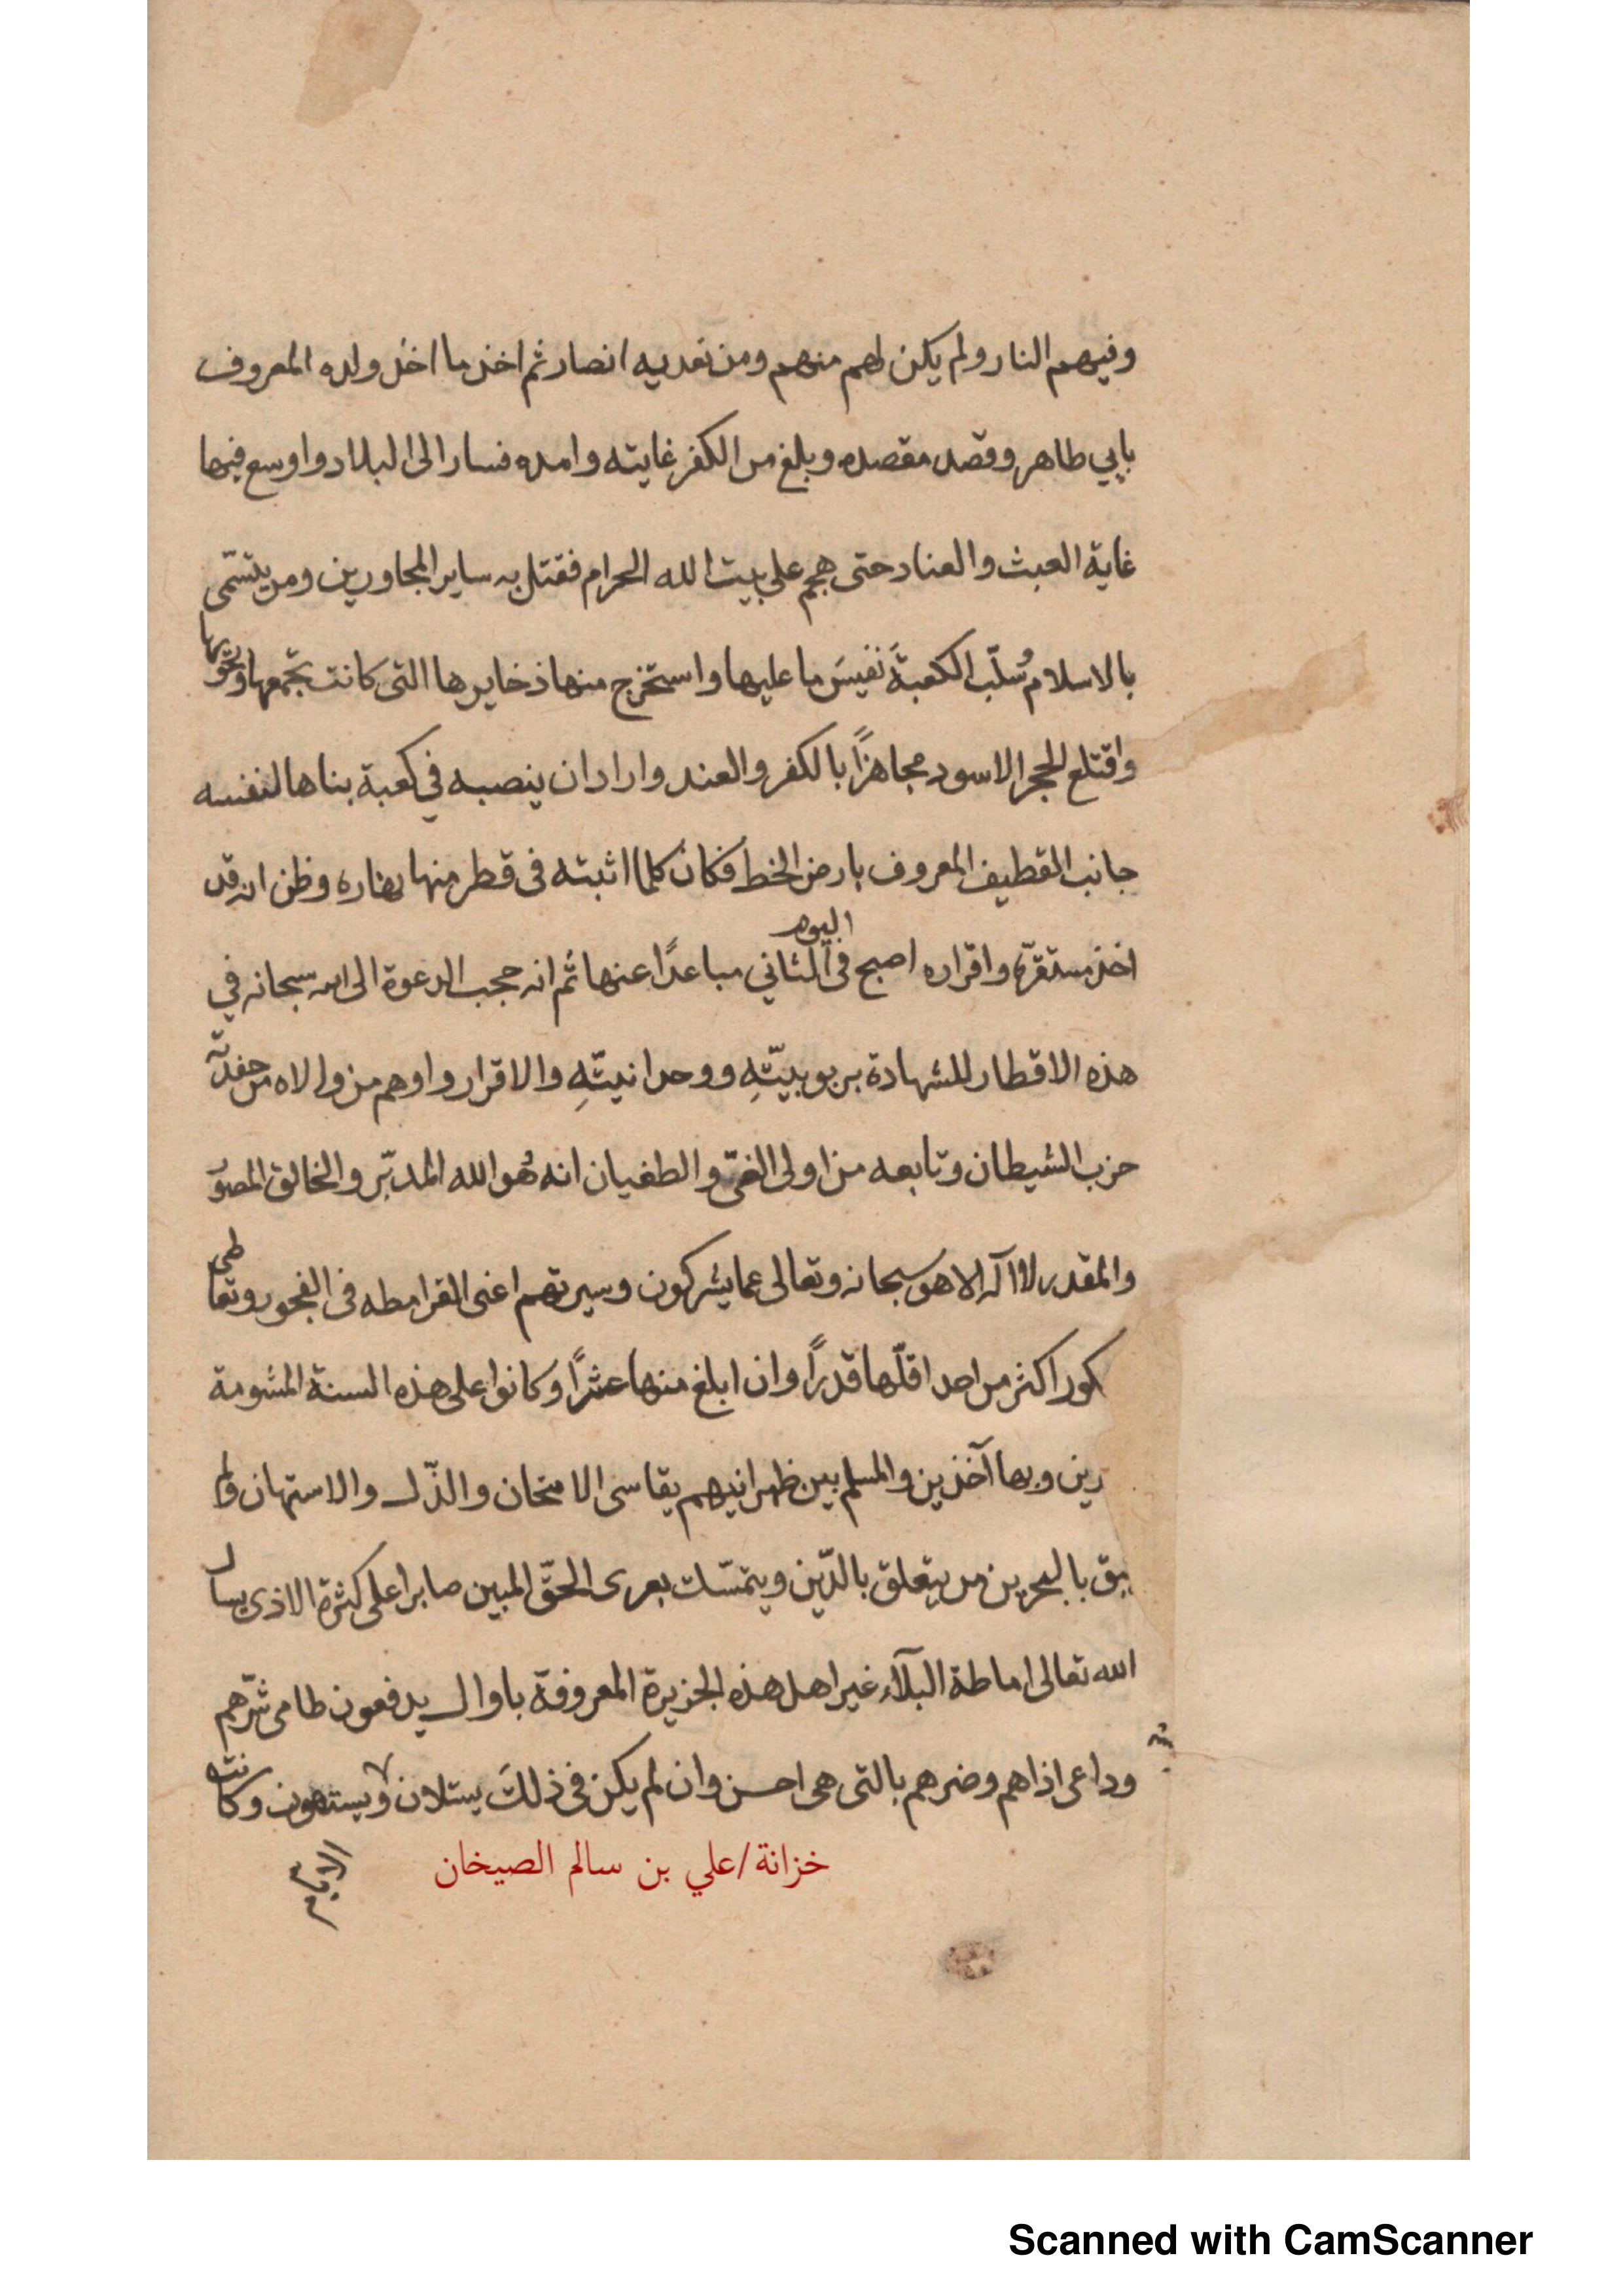 وفيهم النار ولم يكن لهم منهم ومن تعديه انصار ثم اخذ ما اخذ ولده المعروف
بابي طاهر وقصد مقصده وبلغ من الكفر غايته وامده فسار الى البلاد واوسع فيها
غاية العبث والعناد حتى هجم على بيت الله الحرام فقتل به ساير المجاورين ومن يتسمّى
بالاسلام وُسلّب الكعبةَ نفيسَ ما عليها واستخرج منها ذخايرها التى كانت تجمعها وتحويها
واقتلع الحجر الاسود مجاهرًا بالكفر والعند واراد ان ينصبه في كعبة بناها لنفسه
جانب القطيف المعروف بارض الخط فكان كلما اثبته فى قطر منها وظن انه قد
اخذ مستقرّه واقراره اصبح فى اليوم الثاني مباعدًا عنها ثم انه حجب الدعوة الى الله سبحانه في
هذه الاقطار للشهادة بربوبيتّهِ ووحدانيتّهِ والاقرار واوهم من والاه من حفدته
حزب الشيطان وتابعه من اولى الغىّ والطغيان انه هُو الله المدبّر والخالق المصوّر
والمقدر لا اله الا هو سبحانه وتعالى عما يشركون وسيرتهم اعنى القرامطه فى الفجور وتعاطى
كور اكثر من احد اقلّها قدرًا وان ابلغ منها عشرًا وكانوا على هذه السنة المشومة
رين وبها آخذين والمسلم بين ظهرانيهم يقاسى الامتحان والذّل والاستهان ولم
يبق بالبحرين من يتعلق بالدّين ويتمسّك بعرى الحقّ المبين صابرا على كثرة الاذى يسال
الله تعالى اماطة البلآء غير اهل هذه الجزيرة المعروفة باوال يدفعون طامى شرّهم
وداعى اذاهم وضرهم بالتى هى احسن وان لم يكن فى ذلك يستلان ولا يستهون وكانت
الايام
خزانة/علي بن سالم الصيخان
Scanned with CamScanner